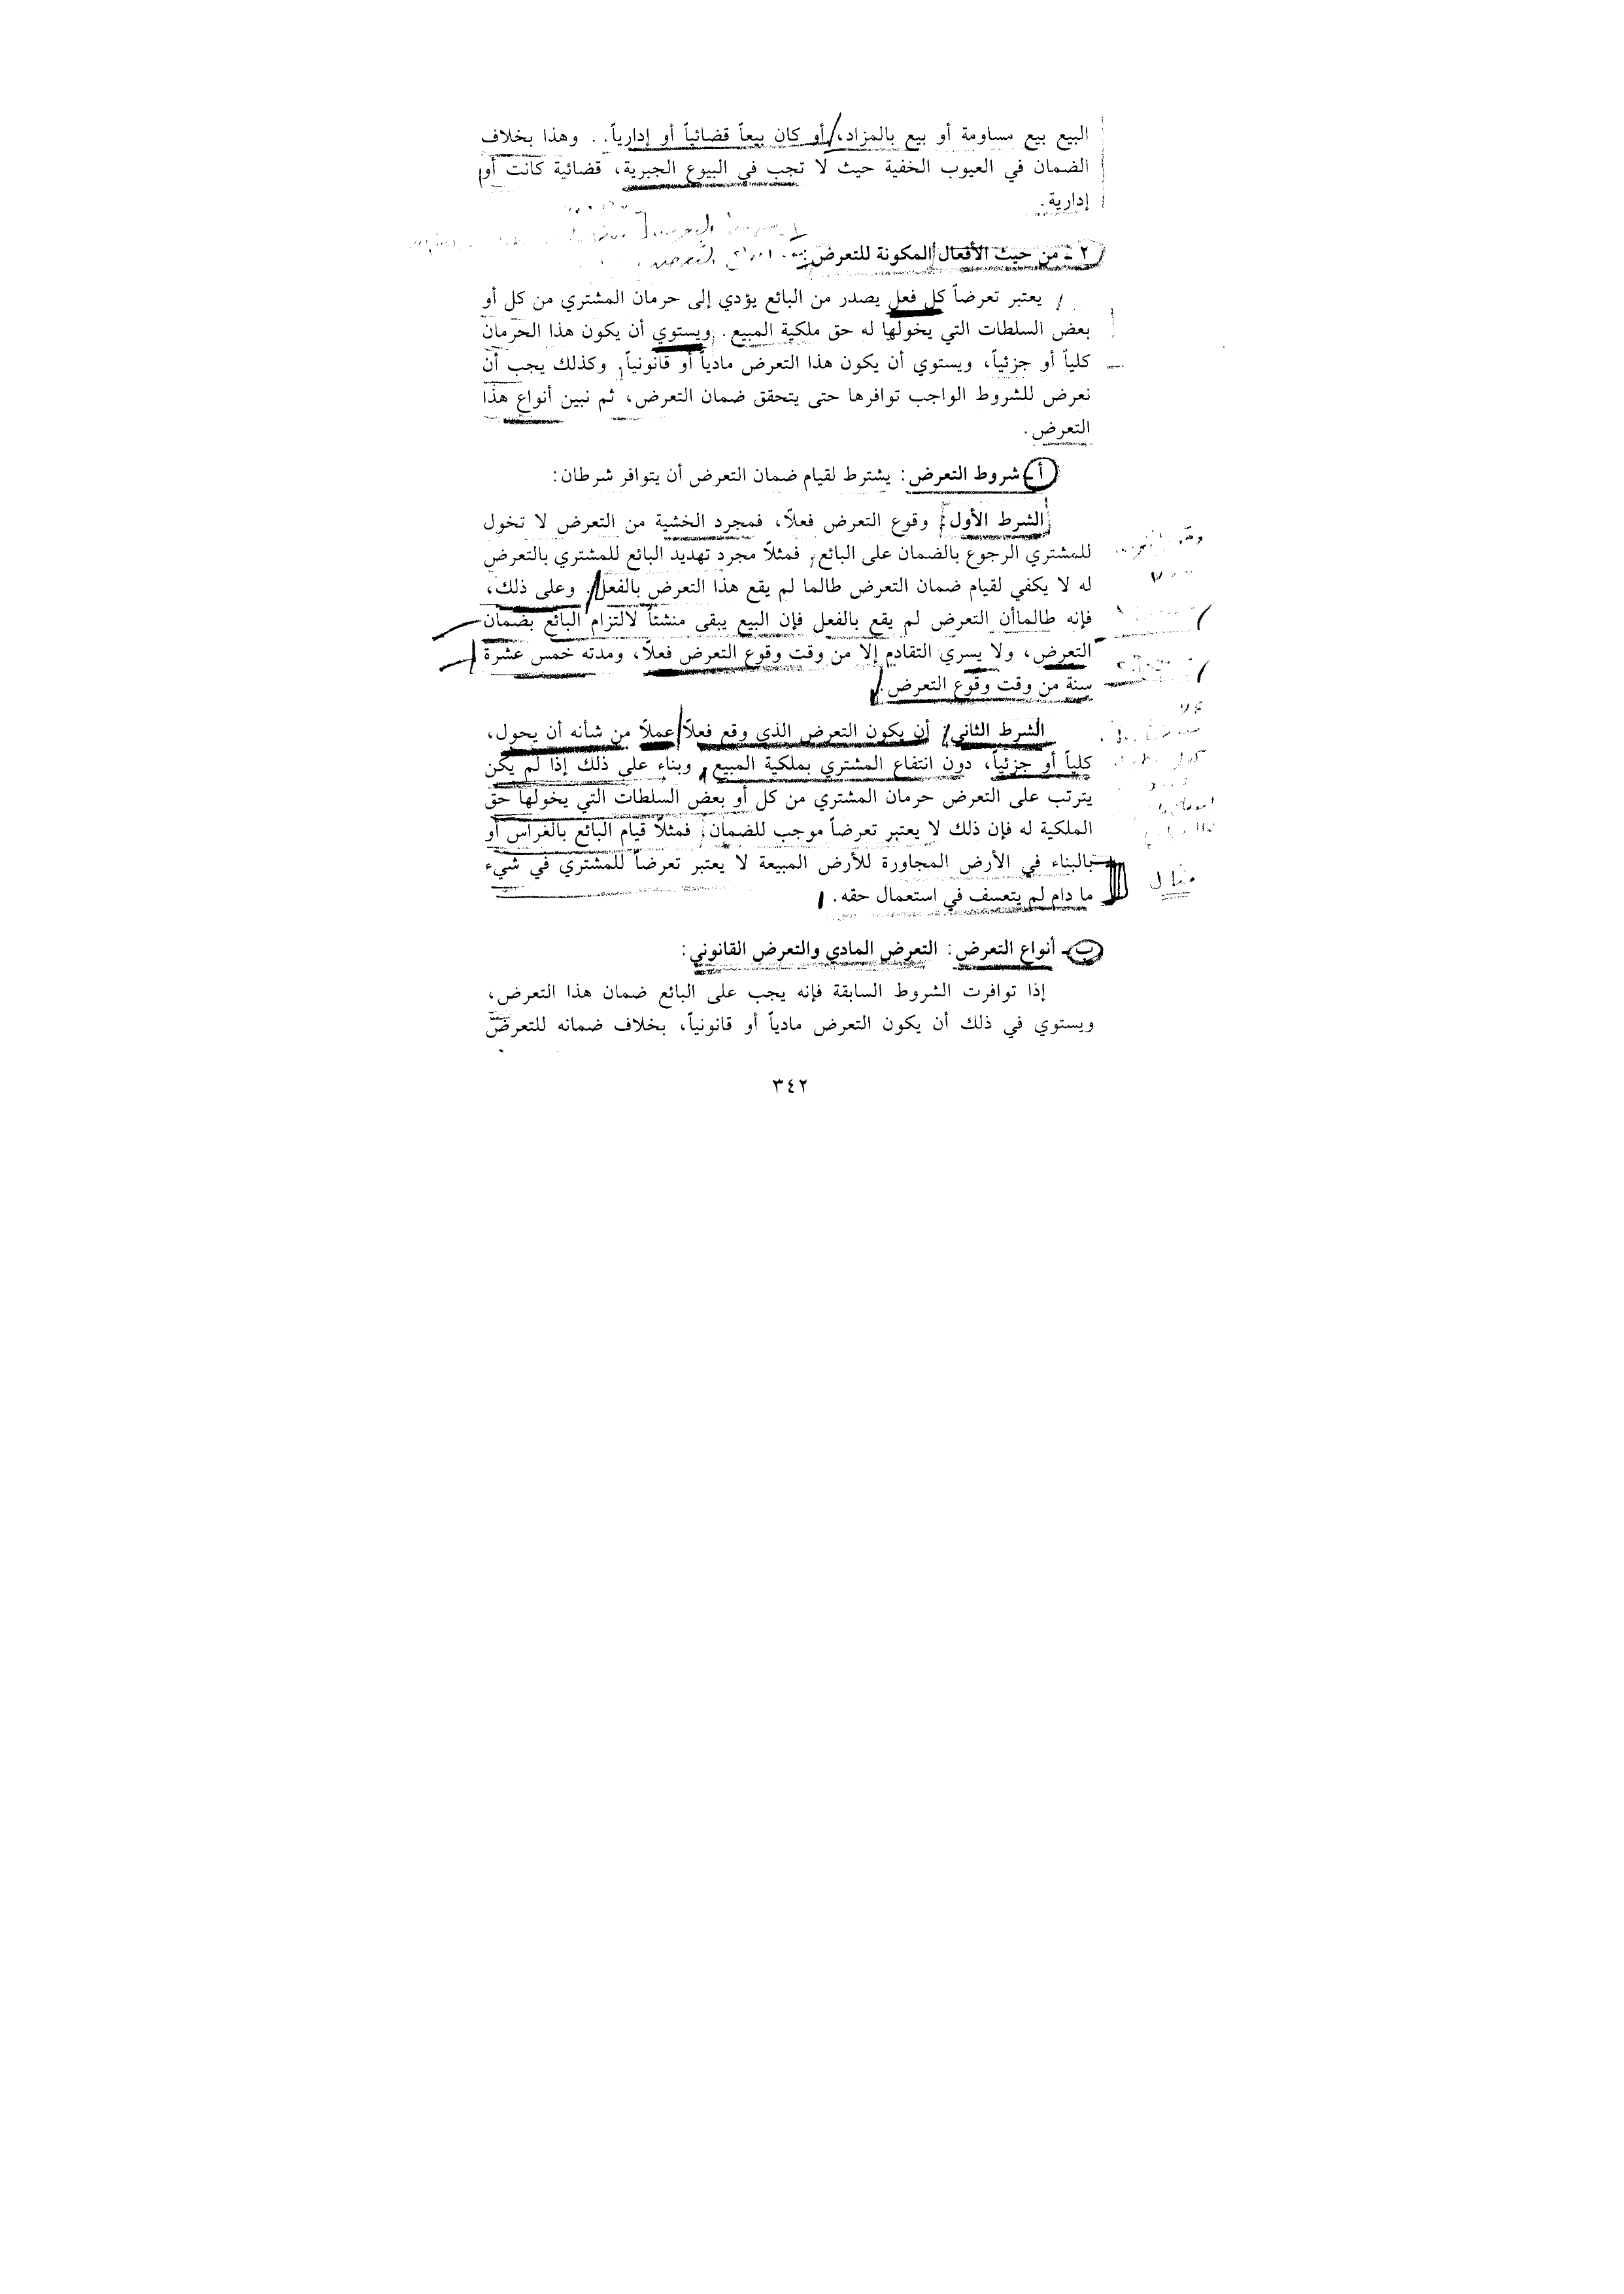 البيع بيع مساومة أو بيع بالمزاد، أو كان بيعاً قضائياً أو إدارياً. . وهذا بخلاف
الضمان في العيوب الخفية حيث لا تجب في البيوع الجبرية، قضائية كانت أو
إدارية.
٢ ـ من حيث الأفعال المكونة للتعرض:
يعتبر تعرضاً كل فعل يصدر من البائع يؤدي إلى حرمان المشتري من كل أو
بعض السلطات التي يخولها له حق ملكية المبيع. ويستوي أن يكون هذا الحرمان
كلياً أو جزئياً، ويستوي أن يكون هذا التعرض مادياً أو قانونياً. وكذلك يجب أن
نعرض للشروط الواجب توافرها حتى يتحقق ضمان التعرض، ثم نبين أنواع هذا
التعرض.
أ ـ شروط التعرض: يشترط لقيام ضمان التعرض أن يتوافر شرطان:
الشرط الأول: وقوع التعرض فعلاً، فمجرد الخشية من التعرض لا تخول
للمشتري الرجوع بالضمان على البائع، فمثلاً مجرد تهديد البائع للمشتري بالتعرض
له لا يكفي لقيام ضمان التعرض طالما لم يقع هذا التعرض بالفعل. وعلى ذلك،
فإنه طالماأن التعرض لم يقع بالفعل فإن البيع يبقى منشئاً لالتزام البائع بضمان
التعرض، ولا يسري التقادم إلا من وقت وقوع التعرض فعلاً، ومدته خمس عشرة
سنة من وقت وقوع التعرض.
الشرط الثاني: أن يكون التعرض الذي وقع فعلاً عملاً من شأنه أن يحول،
كلياً أو جزئياً، دون انتفاع المشتري بملكية المبيع، وبناء على ذلك إذا لم يكن
يترتب على التعرض حرمان المشتري من كل أو بعض السلطات التي يخولها حق
الملكية له فإن ذلك لا يعتبر تعرضاً موجب للضمان، فمثلاً قيام البائع بالغراس أو
بالبناء في الأرض المجاورة للأرض المبيعة لا يعتبر تعرضاً للمشتري في شيء
مثال
ما دام لم يتعسف في استعمال حقه.
ب ـ أنواع التعرض: التعرض المادي والتعرض القانوني:
إذا توافرت الشروط السابقة فإنه يجب على البائع ضمان هذا التعرض،
ويستوي في ذلك أن يكون التعرض مادياً أو قانونياً، بخلاف ضمانه للتعرض
٣٤٢